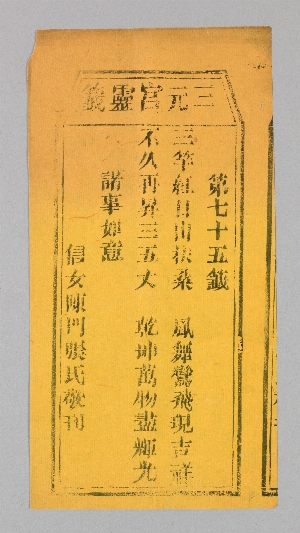 三元宮靈籤
第七十五籤
三竿紅日出扶桑 鳳舞鸞飛現吉祥
不久再昇三五丈 乾坤萬物盡輝光
諸事如意
信女陳門吳氏敬刊